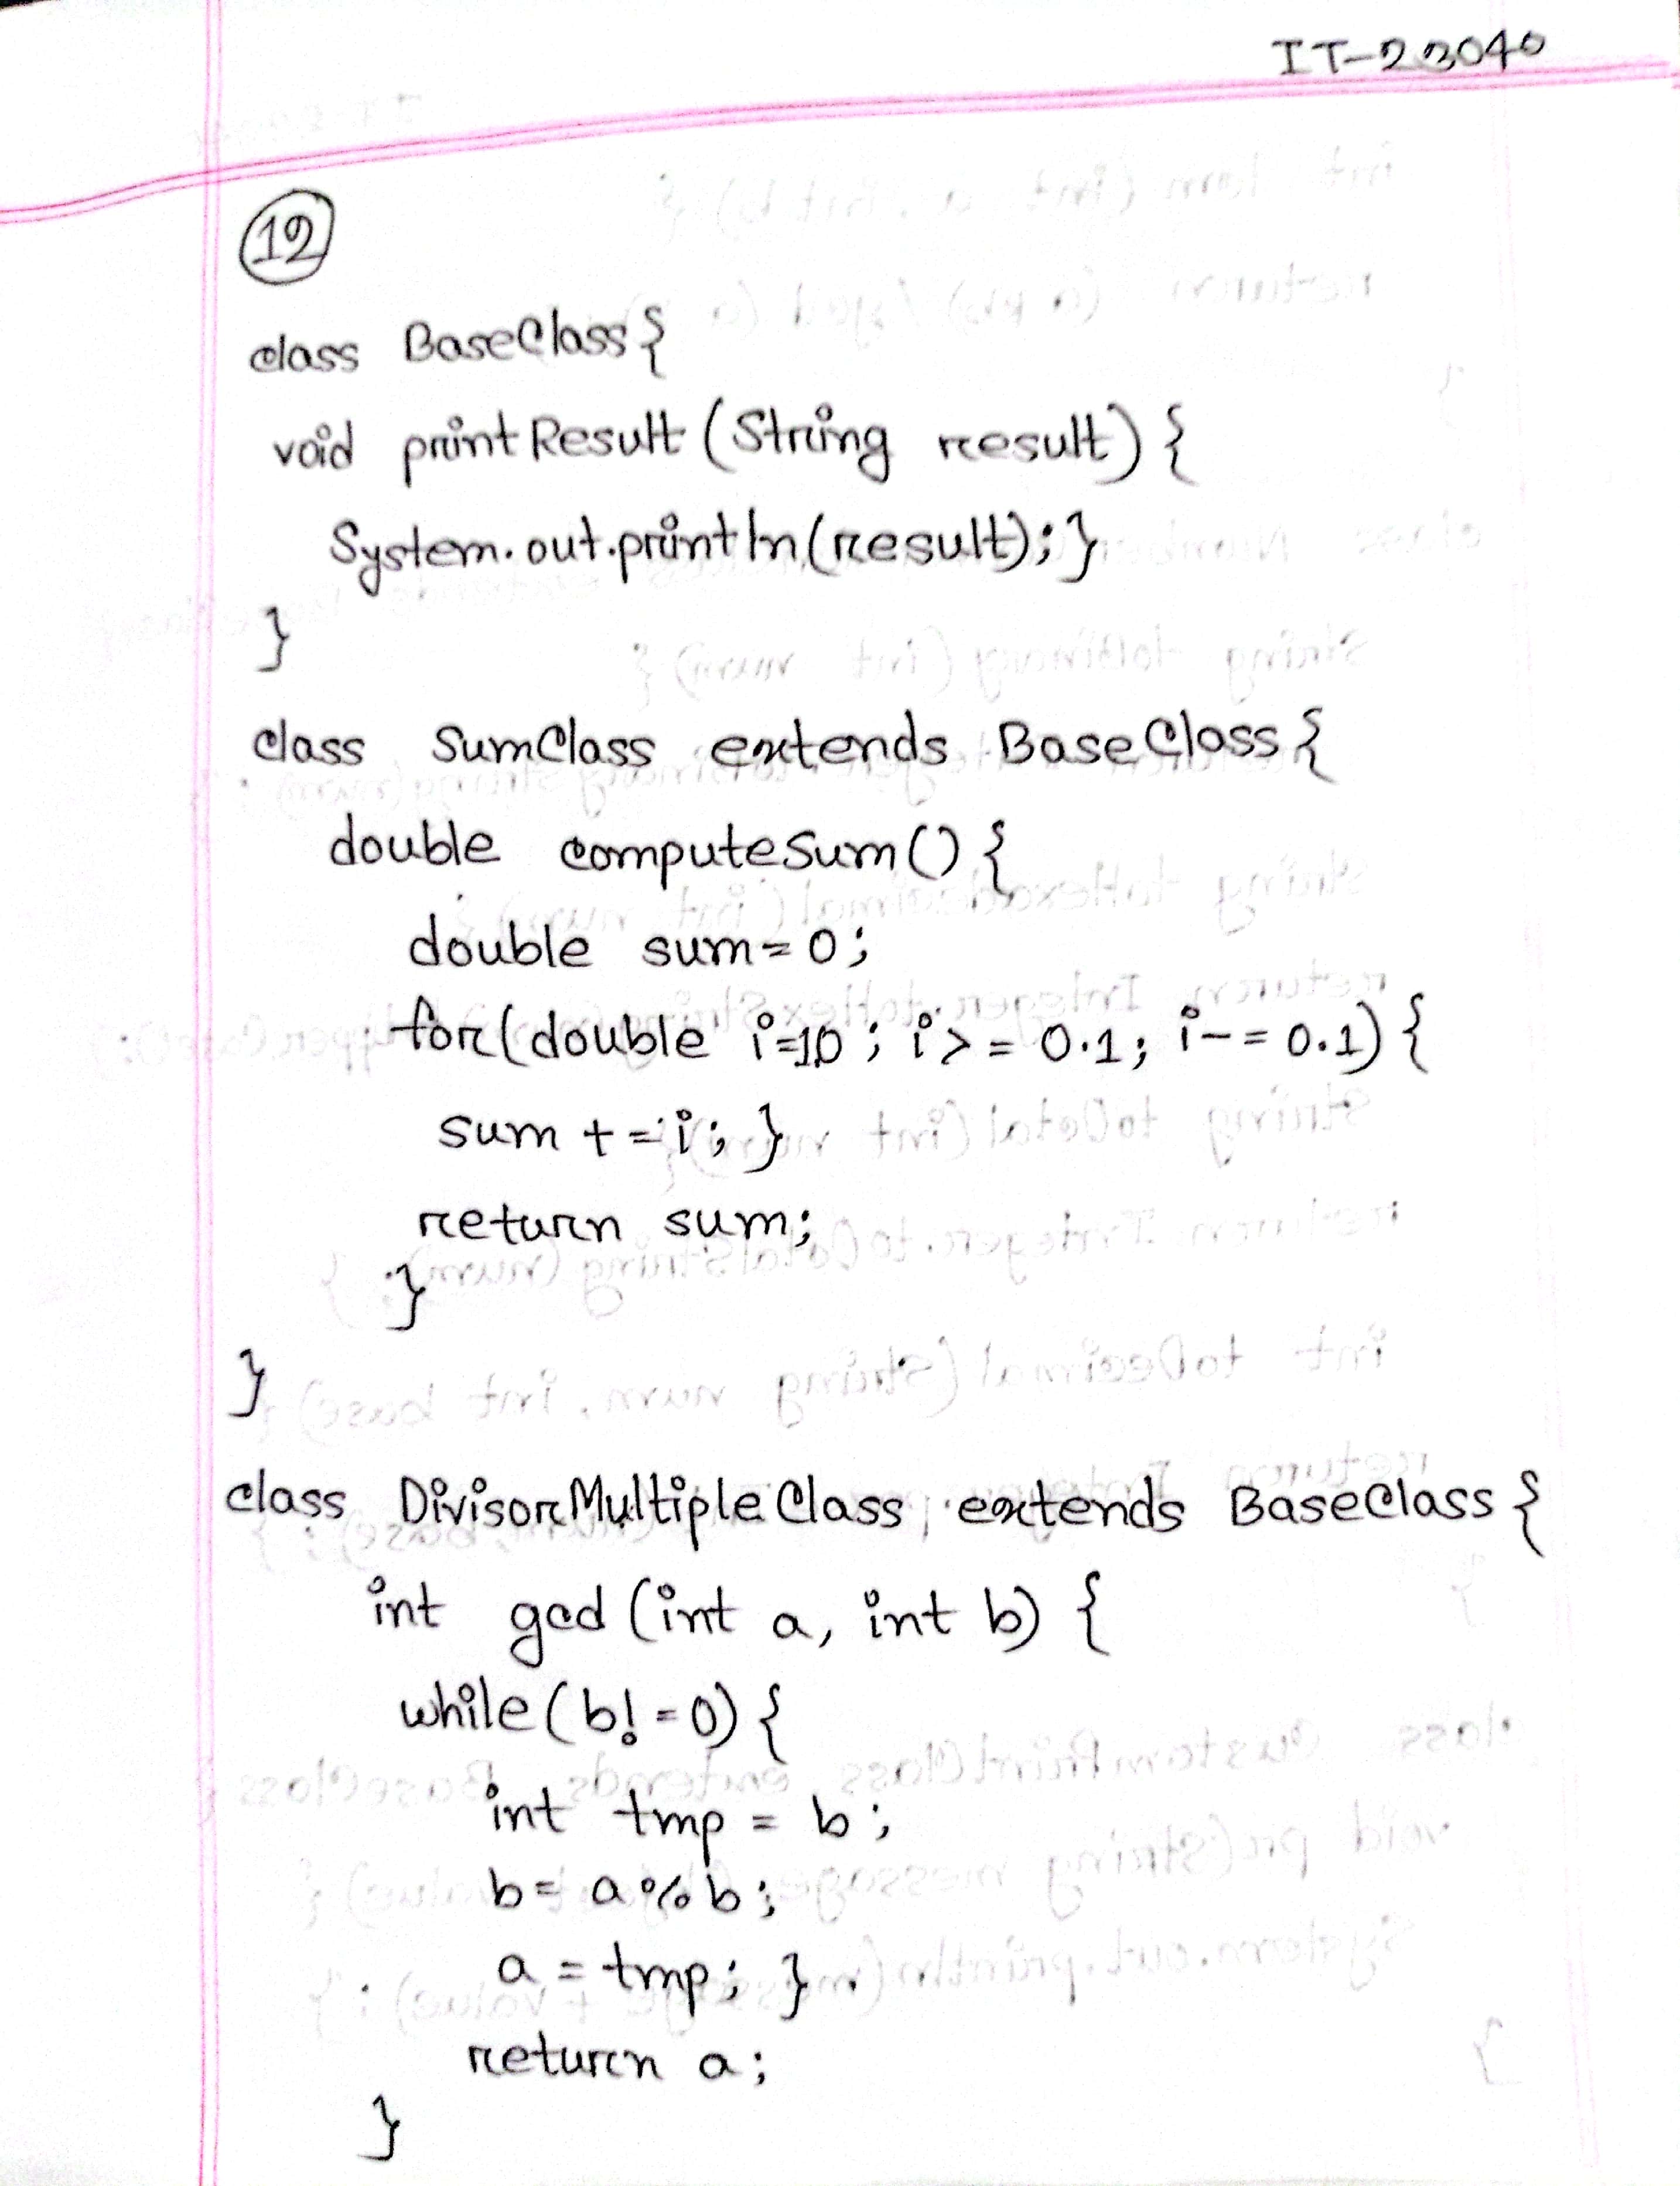 IT-23040
12
class BaseClass{
void printResult (String result) {
System.out.println(result);}
}
class SumClass extends BaseClass{
double computeSum() {
double sum=0;
for(double i=1.0; i>= 0.1; i-= 0.1) {
sum +=i; }
return sum;
}
}
class DivisorMultipleClass extends BaseClass {
int gcd (int a, int b) {
while(b!=0) {
int tmp = b;
b= a%b;
a = tmp; }
return a;
}